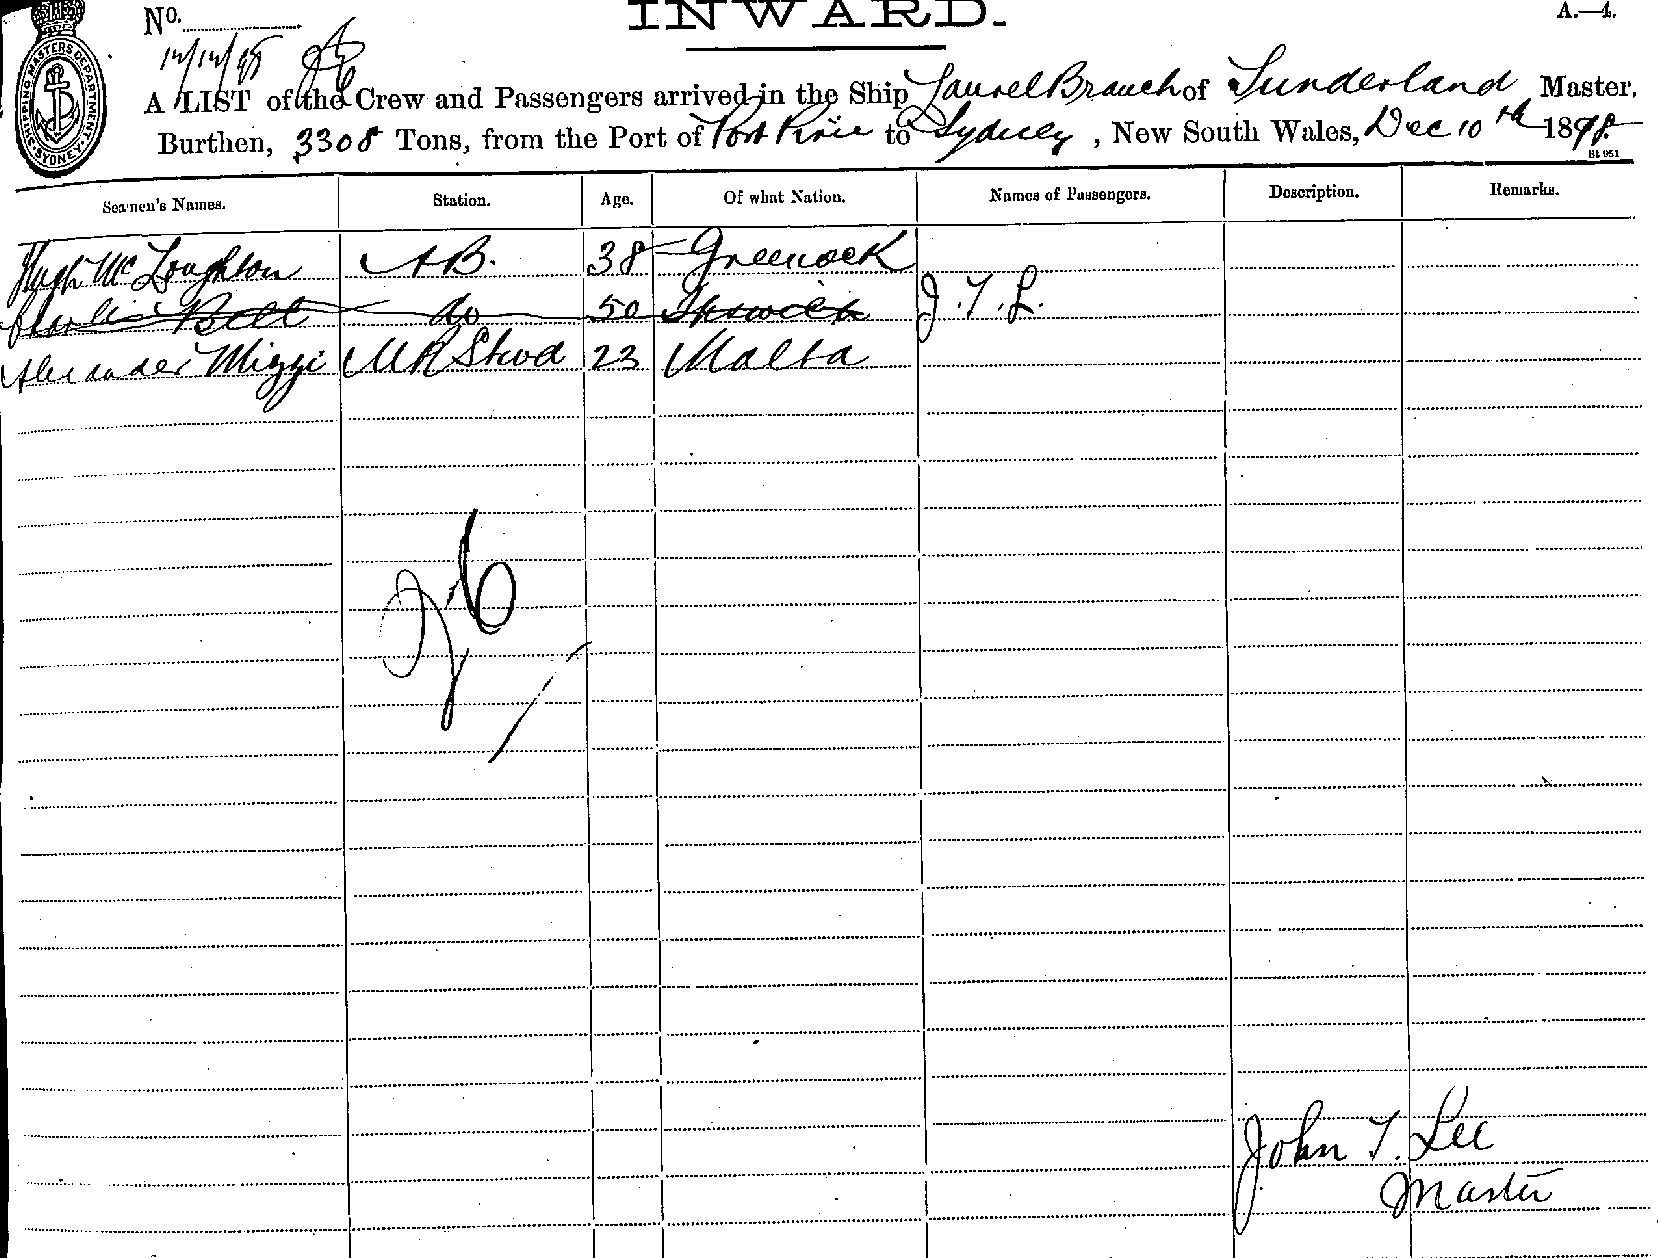 INWARD.
A.—4.
No.
12/12/98
SHIPPING MASTERS DEPARTMENT SYDNEY
A LIST of the Crew and Passengers arrived in the Ship Laurel Branch of Sunderland Master,
Burthen, 3308 Tons, from the Port of Port Pirie to Sydney, New South Wales, Dec 10th 1898
St 951
Seamen's Names. Station. Age. Of what Nation. Names of Passengers. Description. Remarks.
Hugh McLoughton AB. 38 Greenock
Charlie Bell do 50 Ipswich J.T.L.
Alexander Mizzi MR Stwd 23 Malta
John T. Lee
Master